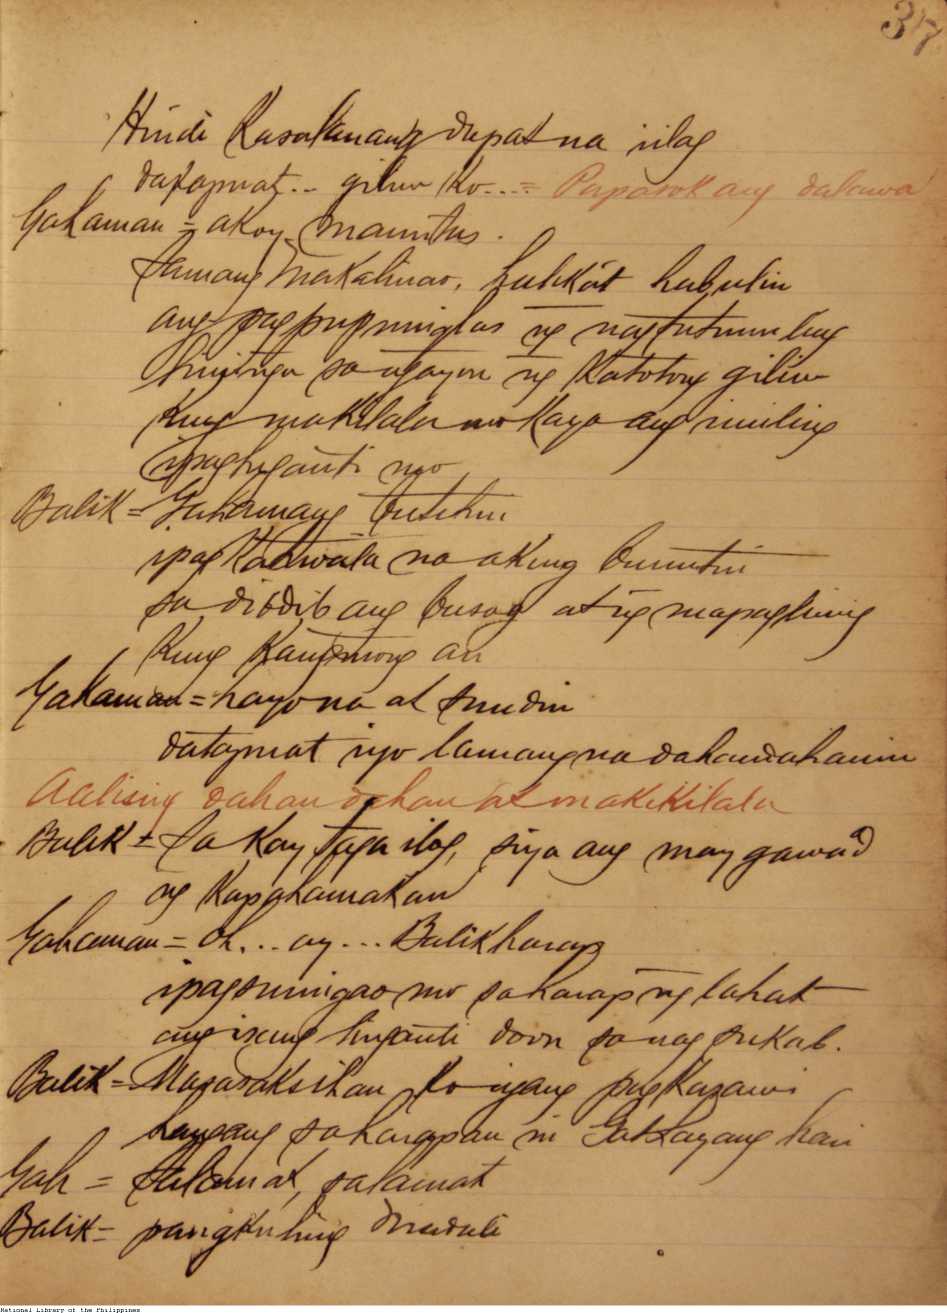 37
Hindi Kasalanang dapat na iilag
datapuat.. giliw ko...= Papasok ang dalawa
Gahaman = akoy mauntus.
Samang makalinao, hulikat habulin
ang pagpupumiglas ng nagtutumulug
hininga sa ayon ng Katotong giliw
Kung makilala mo Kaya ang iniiling
ipaghiganti mo
Balik = Gahamang butihin
ipagkatiwala na aking bununtin
sa dibdib ang busog at ng mapagliring
Kung Kangmong an
Gahaman = hayo na at sundin
datapuat iyo lamang na dahandahanin
Aalising dahan dahan at makikilala
Balik = Sa Kay Taga ilog, siya ang may gawad
ng Kapahamakan
Gahaman = oh... ay... Balik harap
ipagsumigao mo sa harap ng lahat
ang ixang higanti doon sa nag sukab.
Balik = Masasaksihan ko iyang pagkazawi
hangang sa harapan ni Gatkayang hari
Gah = Salamat, salamat
Balik = madali
National Library of the Philippines